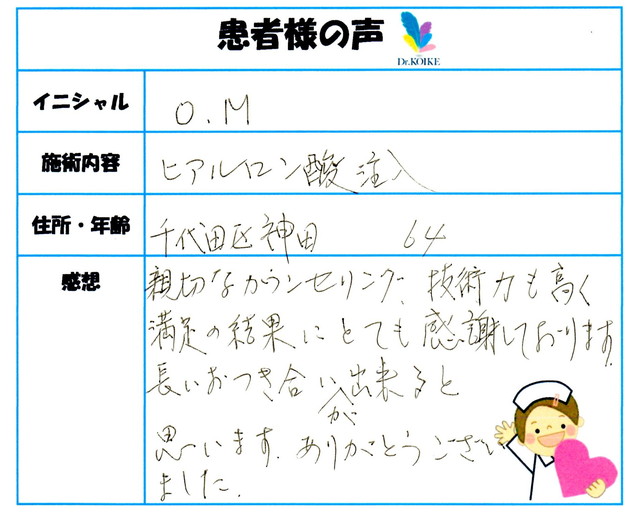 患者様の声
Dr.KOIKE
イニシャル
O.M
施術内容
ヒアルロン酸注入
住所・年齢
千代田区神田 64
感想
親切なカウンセリング、技術力も高く
満足の結果にとても感謝しております。
長いおつき合いが出来ると
思います。ありがとうござい
ました。